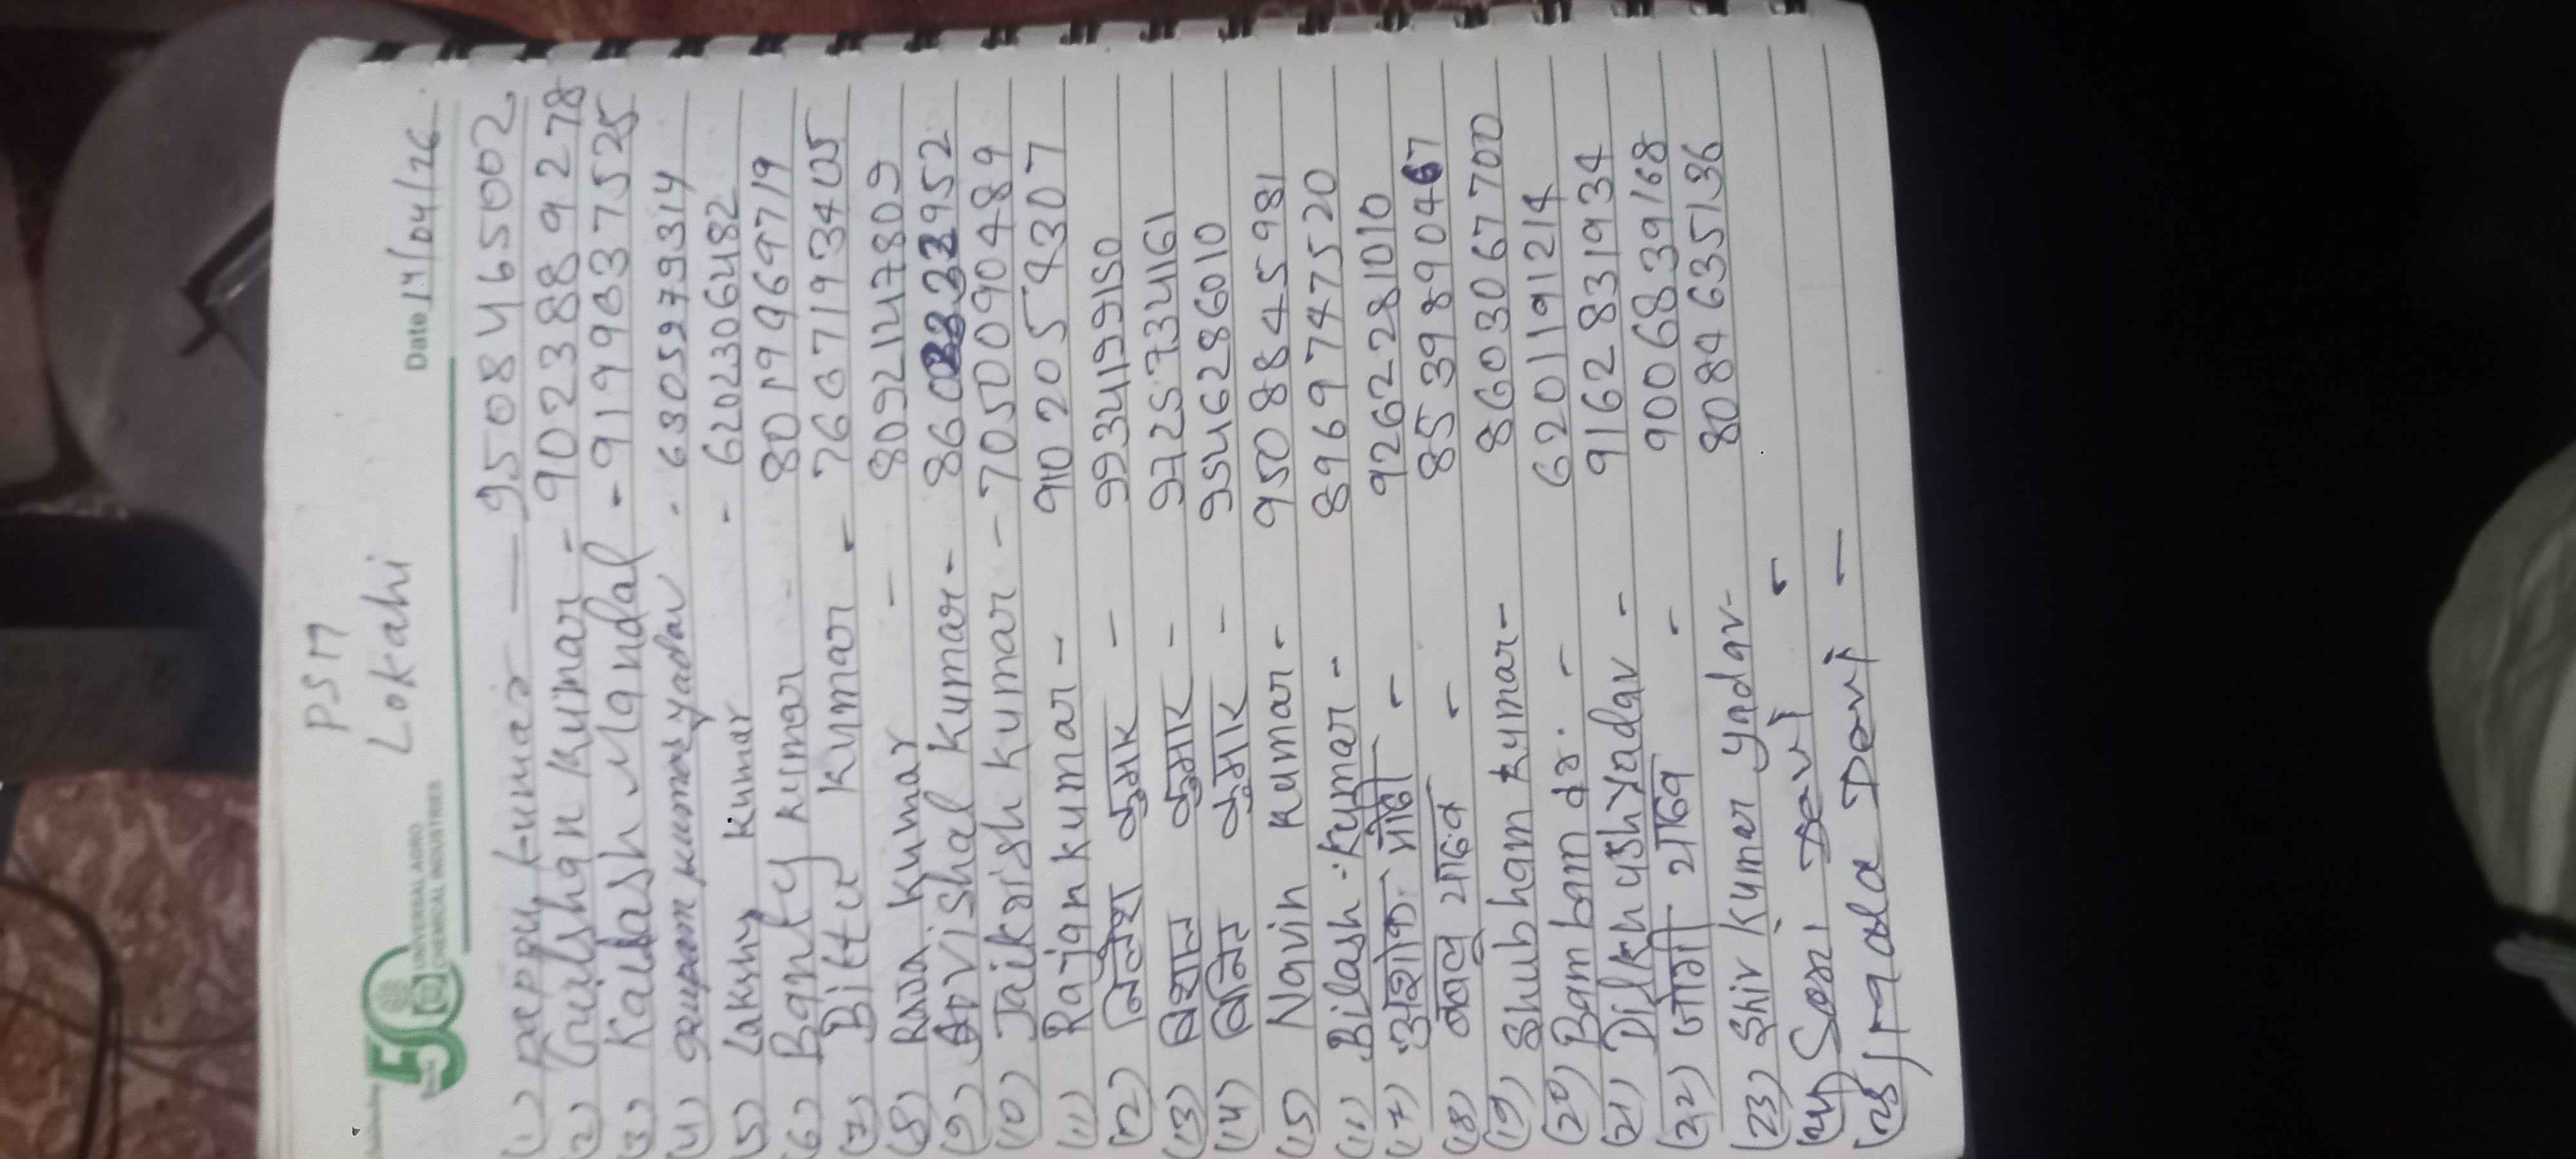 PSM
Lokahi
Date 14/04/26
50
UNIVERSAL AGRO
CHEMICAL INDUSTRIES
(1) Pappu Kumar — 9508465002
(2) Gulshan Kumar - 9023889278
(3) Kailash Mandal - 9199637525
(4) Kumar Yadav - 6305979314
(5) Lakshy Kumar - 6202306482
(6) Banty Kumar - 8019969719
(7) Bittu Kumar - 7667193405
(8) Raja Kumar - 8092147809
(9) Vishal Kumar -
(10) Jaikrish Kumar - 7050090489
(11) Rajan Kumar - 9102054307
(12) नितेश कुमार - 9934199150
(13) विशाल कुमार - 9725734161
(14) विनित कुमार - 9546286010
(15) Navin Kumar - 9508845981
(16) Bilash Kumar - 8969747520
(17) अशोक मोदी - 9262281010
(18) बबलू यादव - 8539890467
(19) Shubham Kumar - 8603067700
(20) Bam bam dr. - 6201191214
(21) Dilkhush Yadav - 9162831934
(22) जोगी यादव - 9006839168
(23) Shiv Kumar Yadav - 8084635136
(24) Soni Devi -
(25) Mala Devi —